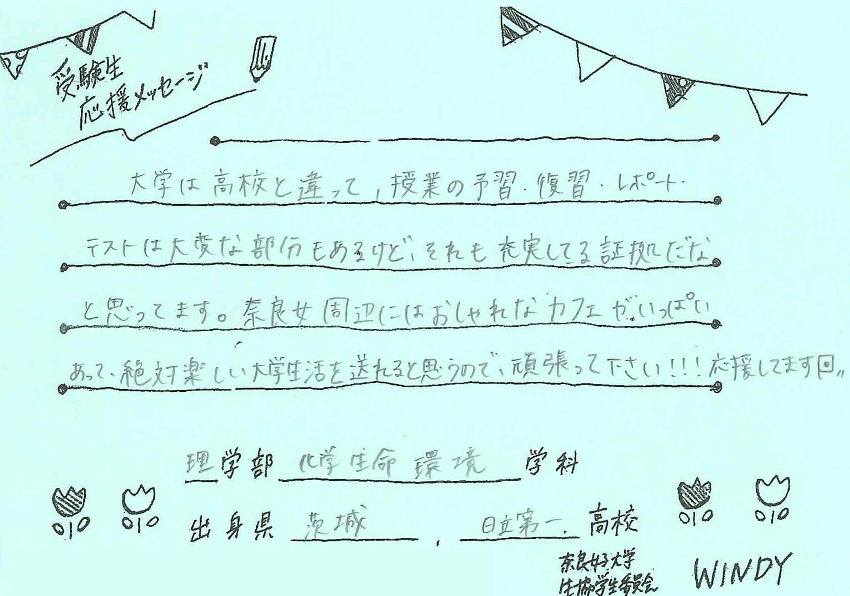 受験生
応援メッセージ
大学は高校と違って、授業の予習・復習・レポート・
テストは大変な部分もあるけど、それも充実してる証拠だな
と思ってます。奈良女周辺にはおしゃれなカフェがいっぱい
あって、絶対楽しい大学生活を送れると思うので、頑張って下さい!!!応援してます
理学部 化学生命環境 学科
出身県 茨城 , 日立第一 高校
奈良女子大学
生協学生委員会 WINDY